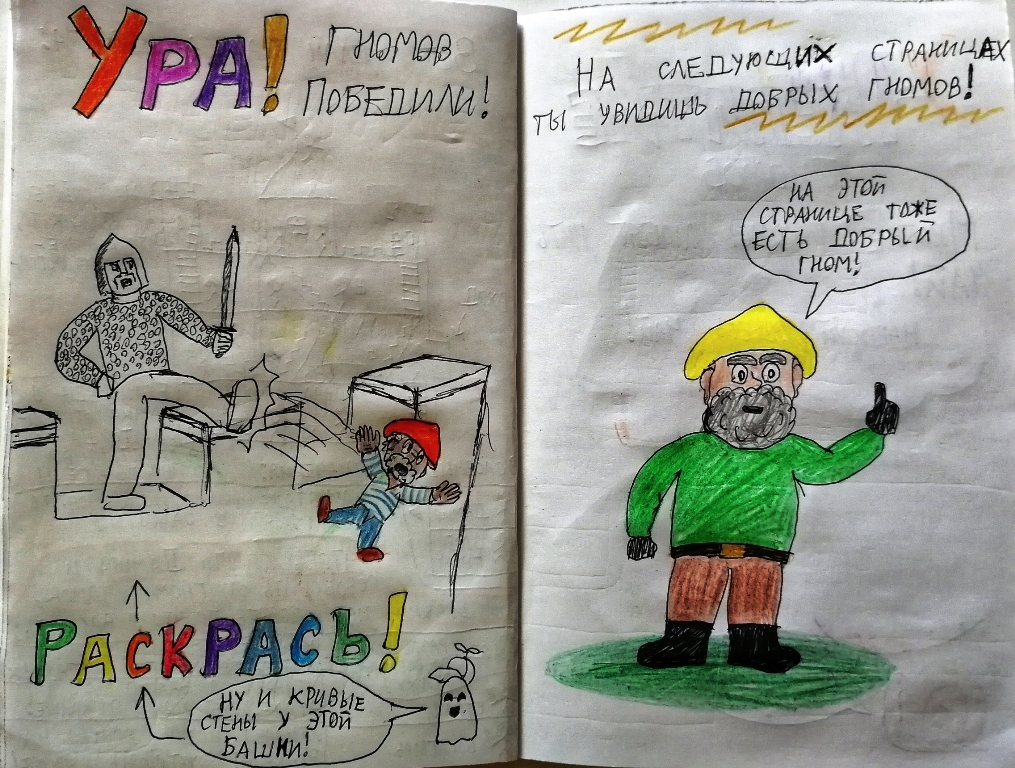 УРА! ГНОМОВ
ПОБЕДИЛИ!
РАСКРАСЬ!
НУ И КРИВЫЕ
СТЕНЫ У ЭТОЙ
БАШНИ!
НА СЛЕДУЮЩИХ СТРАНИЦАХ
ТЫ УВИДИШЬ ДОБРЫХ ГНОМОВ!
НА ЭТОЙ
СТРАНИЦЕ ТОЖЕ
ЕСТЬ ДОБРЫЙ
ГНОМ!